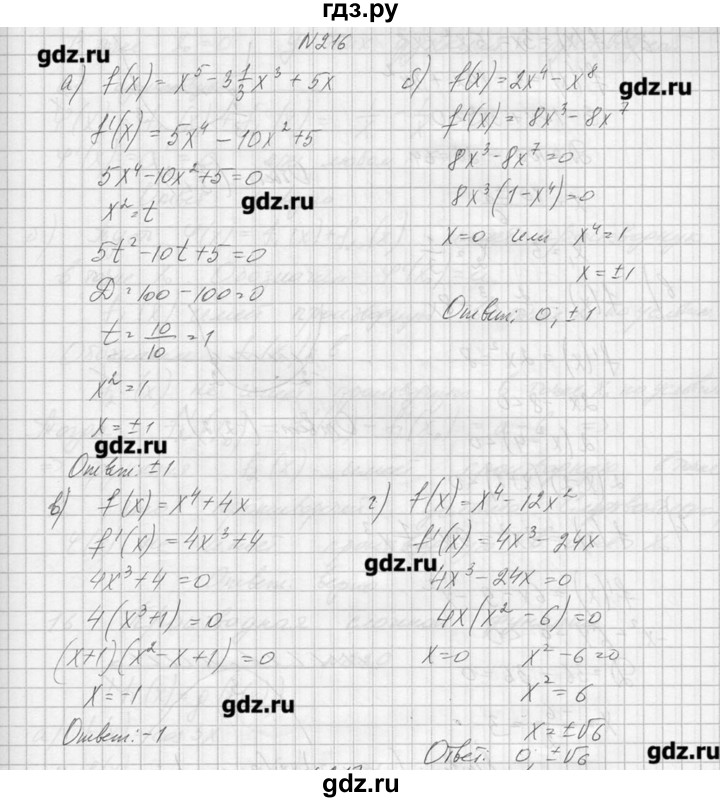 гдз.ру
N216
gdz.ru
а) f(x) = x⁵ - 3 1/3 x³ + 5x
f'(x) = 5x⁴ - 10x² + 5
5x⁴ - 10x² + 5 = 0
gdz.ru
x² = t
5t² - 10t + 5 = 0
D = 100 - 100 = 0
t = 10/10 = 1
x² = 1
x = ±1
gdz.ru
Ответ: ±1
б) f(x) = 2x⁴ - x⁸
gdz.ru
f'(x) = 8x³ - 8x⁷
8x³ - 8x⁷ = 0
8x³(1 - x⁴) = 0
x = 0 или x⁴ = 1
x = ±1
Ответ: 0; ±1
в) f(x) = x⁴ + 4x
f'(x) = 4x³ + 4
4x³ + 4 = 0
4(x³ + 1) = 0
(x+1)(x² - x + 1) = 0
x = -1
gdz.ru
Ответ: -1
г) f(x) = x⁴ - 12x²
f'(x) = 4x³ - 24x
gdz.ru
4x³ - 24x = 0
4x(x² - 6) = 0
x = 0 x² - 6 = 0
x² = 6
x = ±√6
Ответ: 0; ±√6
gdz.ru
gdz.ru